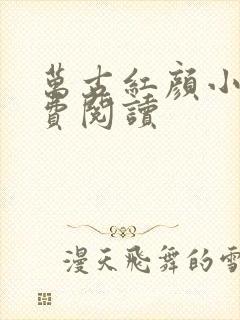 萬古紅顏小
費閱讀
漫天飛舞的雪